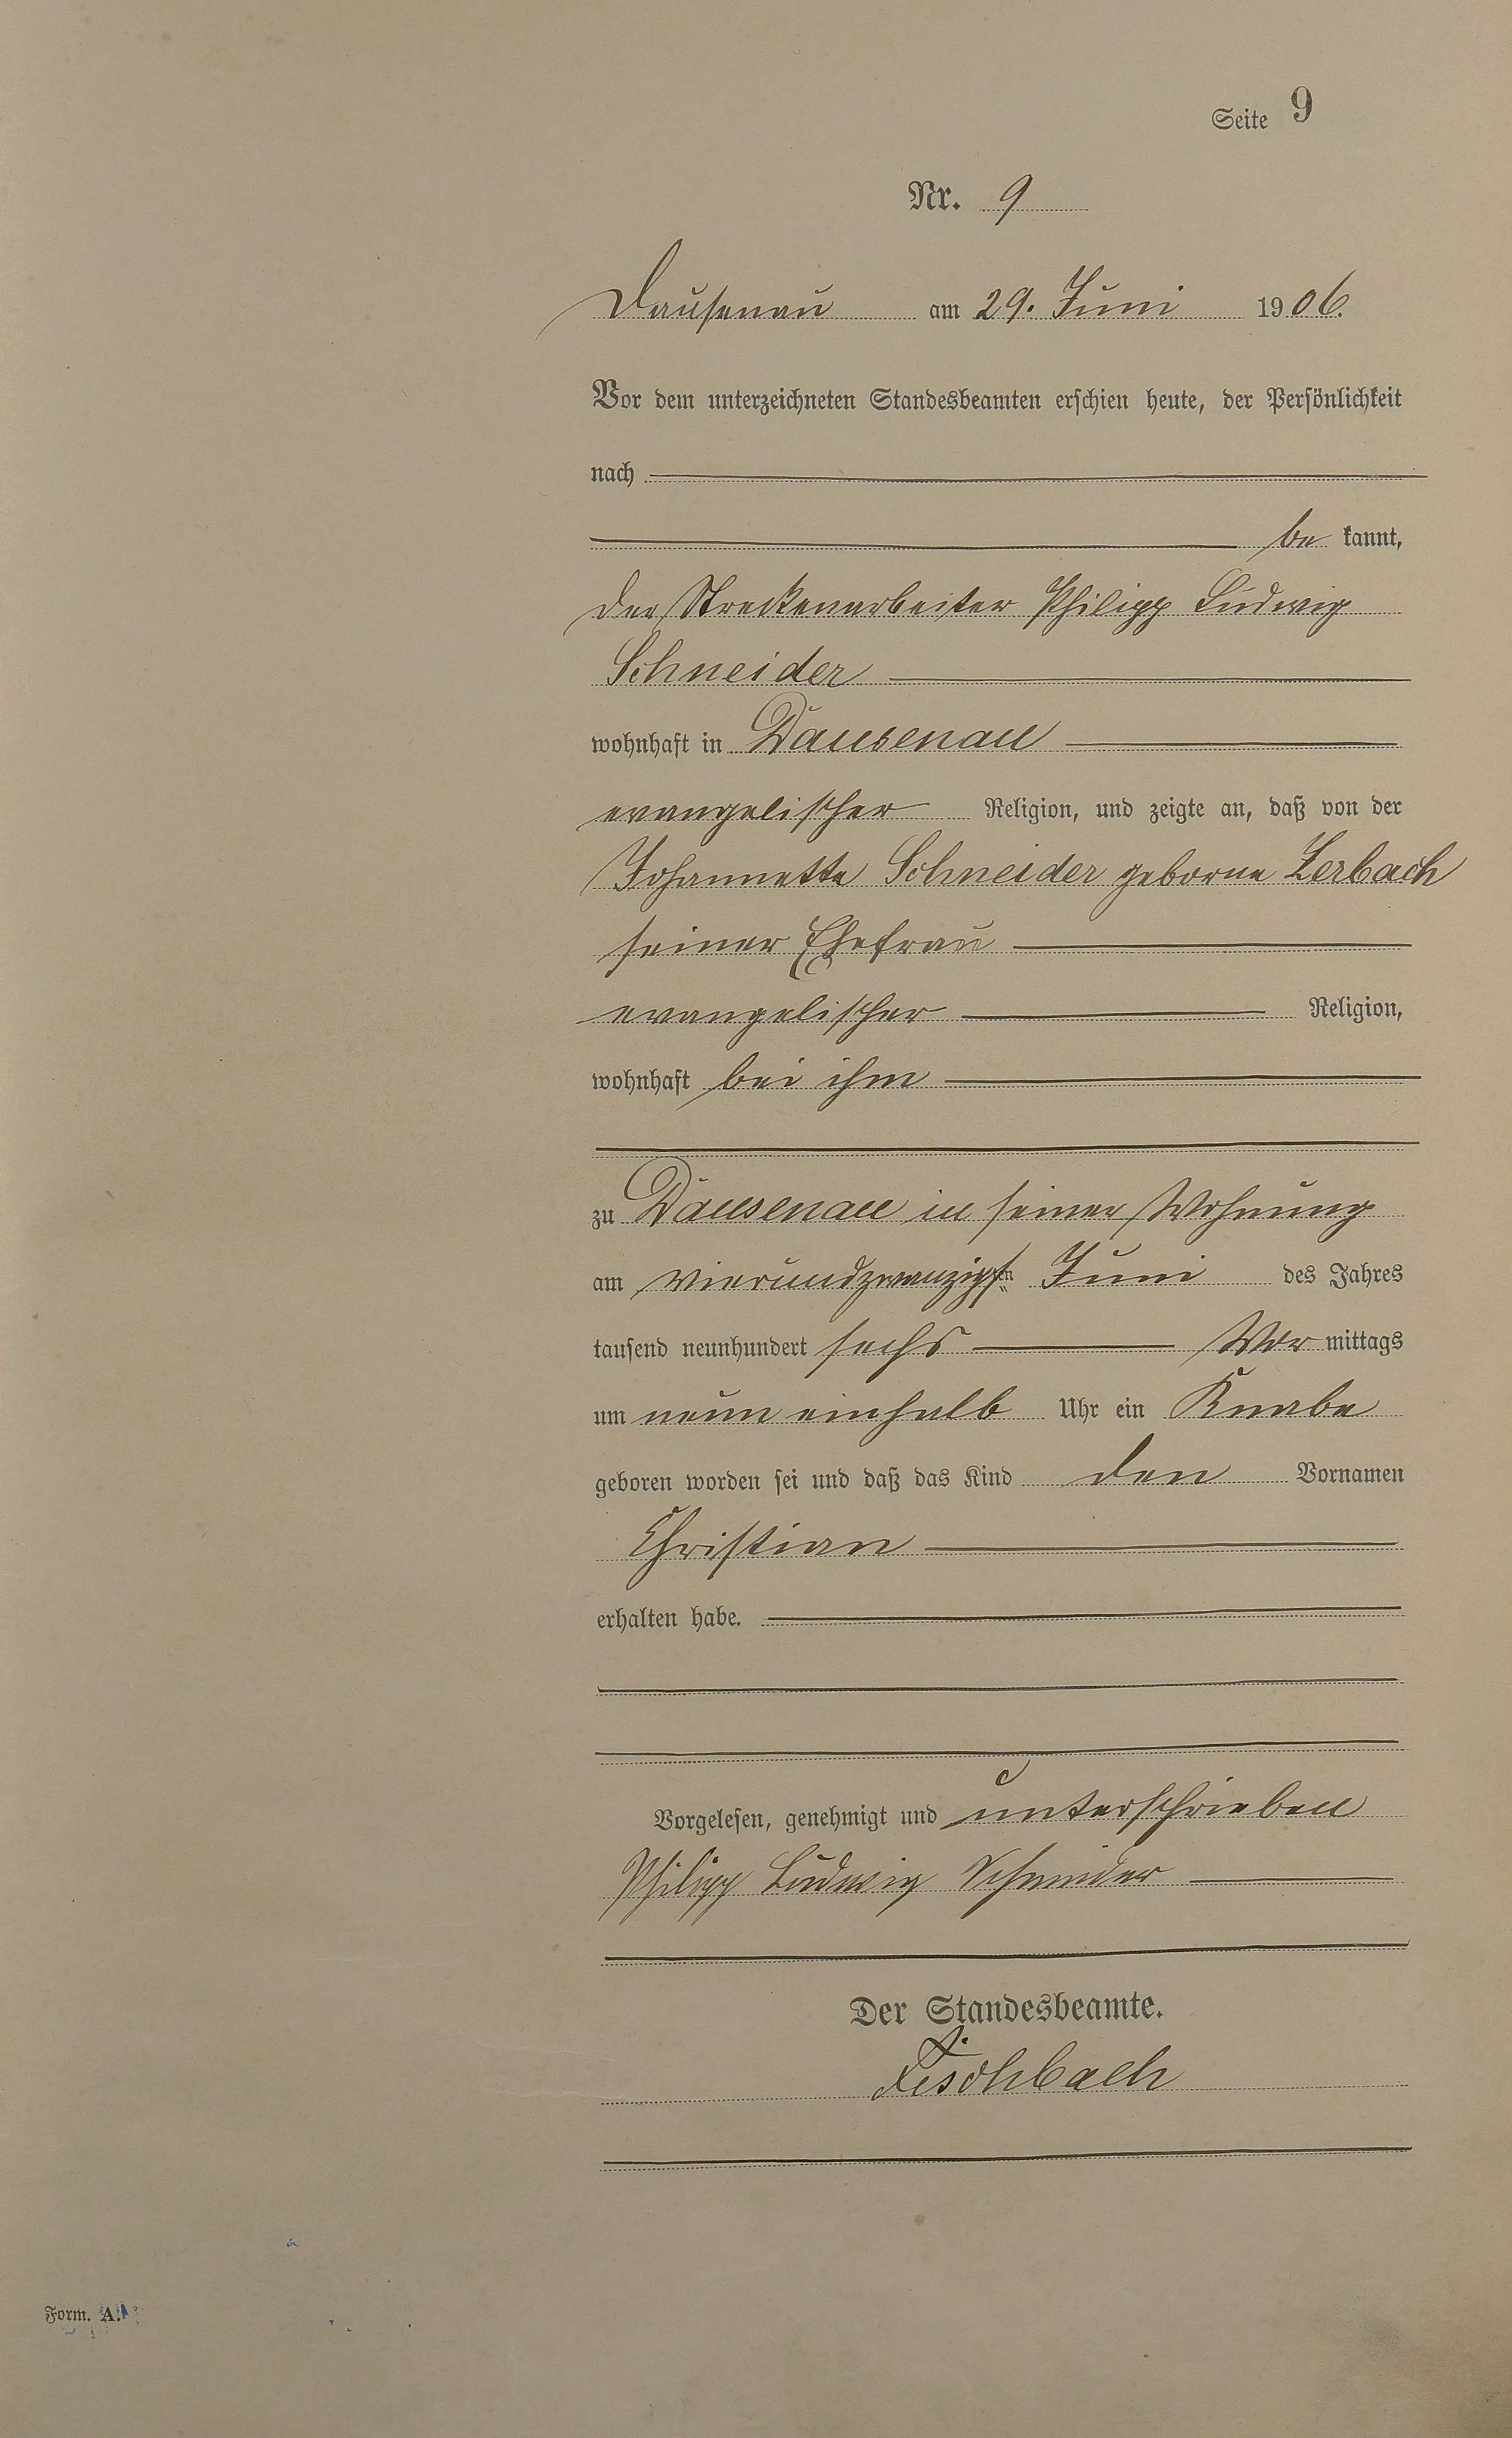 Seite 9
Nr. 9
Dausenau am 29. Juni 1906.
Vor dem unterzeichneten Standesbeamten erschien heute, der Persönlichkeit
nach
be kannt,
der Streckenarbeiter Philipp Ludwig
Schneider
wohnhaft in Dausenau
evangelischer Religion, und zeigte an, daß von der
Johannette Schneider geborne Lerbach
seiner Ehefrau
evangelischer Religion,
wohnhaft bei ihm
zu Dausenau in seiner Wohnung
am vierundzwanzigsten Juni des Jahres
tausend neunhundert sechs Vor mittags
um neun einhalb Uhr ein Knabe
geboren worden sei und daß das Kind den Vornamen
Christian
erhalten habe.
Vorgelesen, genehmigt und unterschrieben
Philipp Ludwig Schneider
Der Standesbeamte.
Fischbach
Form. A.